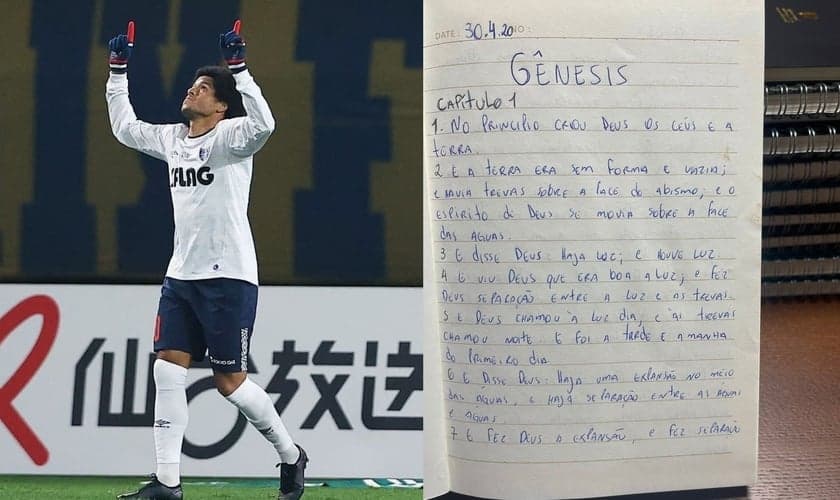 FLAG
仙台放送
DATE: 30.4.20 NO:
GÊNESIS
CAPÍTULO 1
1. NO PRINCÍPIO CRIOU DEUS OS CEÚS E A
TERRA.
2 E A TERRA ERA SEM FORMA E VAZIA;
E HAVIA TREVAS SOBRE A FACE DO ABISMO; E O
ESPÍRITO DE DEUS SE MOVIA SOBRE A FACE
DAS ÁGUAS.
3 E DISSE DEUS: HAJA LUZ; E HOUVE LUZ.
4 E VIU DEUS QUE ERA BOA A LUZ; E FEZ
DEUS SEPARAÇÃO ENTRE A LUZ E AS TREVAS.
5 E DEUS CHAMOU À LUZ DIA; E ÀS TREVAS
CHAMOU NOITE. E FOI A TARDE E A MANHÃ
DO PRIMEIRO DIA
6 E DISSE DEUS: HAJA UMA EXPANSÃO NO MEIO
DAS ÁGUAS, E HAJA SEPARAÇÃO ENTRE AS ÁGUAS
E ÁGUAS.
7 E FEZ DEUS A EXPANSÃO, E FEZ SEPARAÇÃO